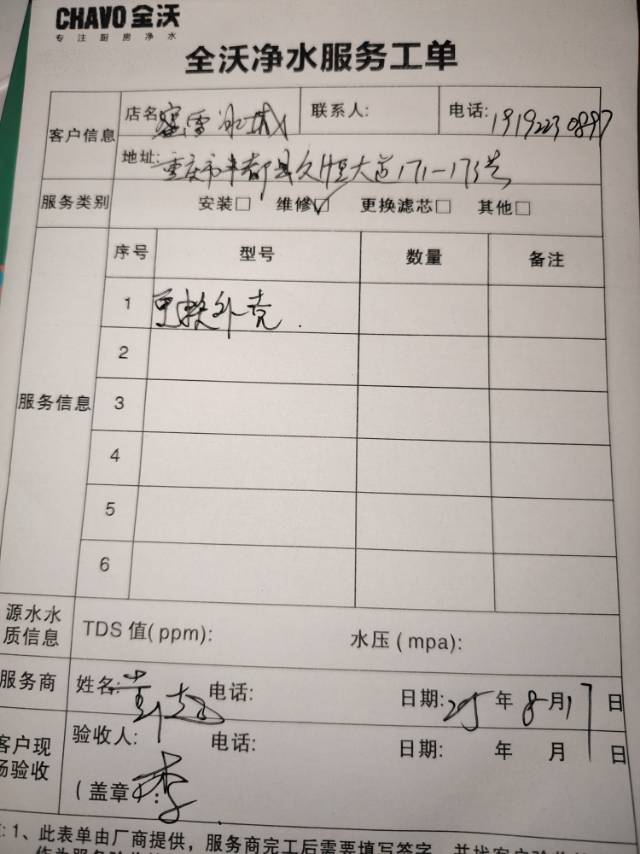 CHAVO 全沃
专注厨房净水
全沃净水服务工单
客户信息 店名: 蜜雪冰城 联系人: 电话: 19192230897
地址: 重庆市丰都县久恒大道171-173号
服务类别 安装□ 维修☑ 更换滤芯□ 其他□
服务信息 序号 型号 数量 备注
1 更换外壳.
2
3
4
5
6
源水水质信息 TDS 值(ppm): 水压(mpa):
服务商 姓名: 电话: 日期: 25年8月17日
客户现场验收 验收人: 电话: 日期: 年 月 日
(盖章): 李
注: 1、此表单由厂商提供，服务商完工后需要填写签字，并找客户验收